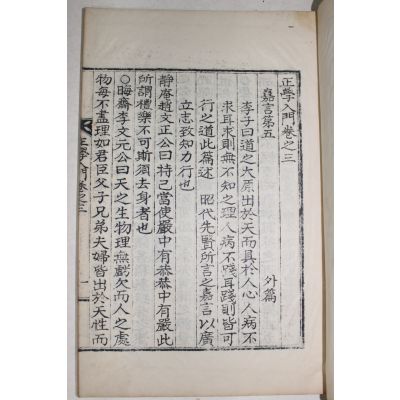 正學入門卷之三
外篇
嘉言第五
李子曰道之大原出於天而具於人心人病不
求耳求則無不知之理人病不踐耳踐則皆可
行之道此篇述 昭代先賢所言之嘉言以廣
立志致知力行也
靜庵趙文正公曰持己當使嚴中有恭恭中有嚴此
所謂禮樂不可斯須去身者也
○晦齋李文元公曰天之生物理無虧欠而人之處
物每不盡理如君臣父子兄弟夫婦皆出於天性而
正學入門卷之三
一